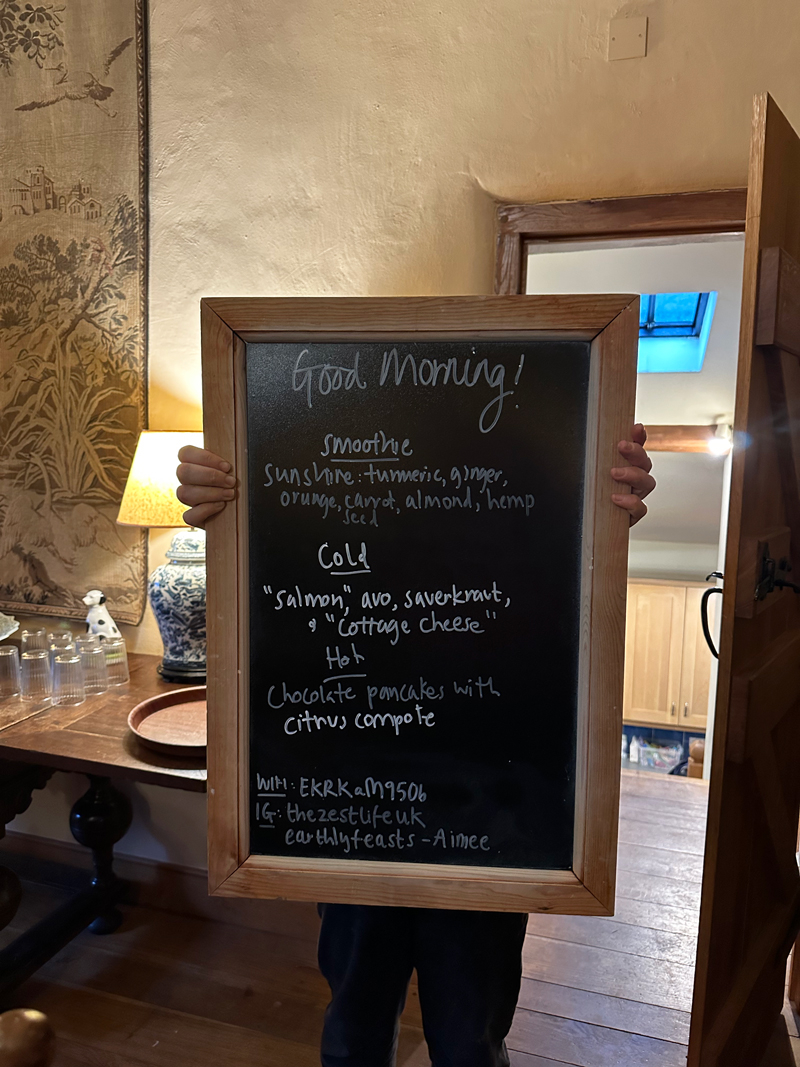 Good Morning!
Smoothie
Sunshine: turmeric, ginger,
orange, carrot, almond, hemp
seed
Cold
"Salmon", avo, saverkraut,
& "Cottage cheese"
Hot
Chocolate pancakes with
citrus compote
WIFI: EKRKaM9506
IG: thezestlifeuk
earthlyfeasts - Aimee